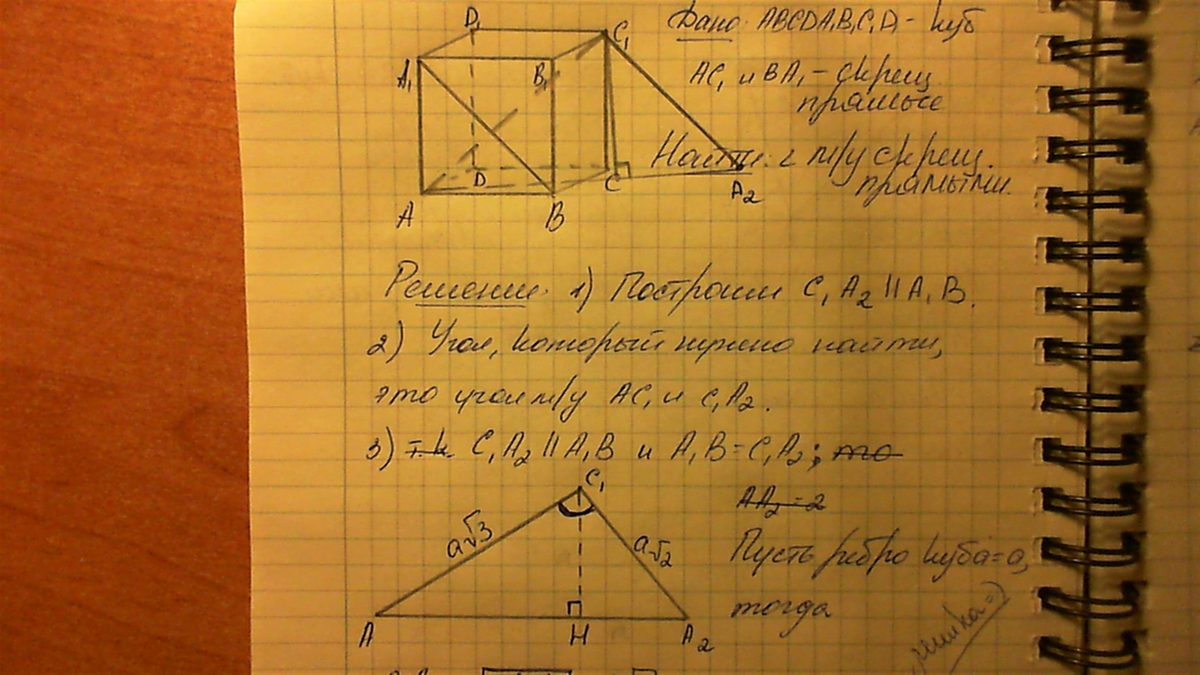 Дано: ABCDA₁B₁C₁D₁ - куб
AC₁ и BA₁ - скрещ.
прямые
Найти: ∠ м/у скрещ.
прямыми.
D₁
C₁
A₁
B₁
D
C
A₂
A
B
Решение: 1) Построим C₁A₂ || A₁B.
2) Угол, который нужно найти,
это угол м/у AC₁ и C₁A₂.
3) т.к. C₁A₂ || A₁B и A₁B = C₁A₂; то
AA₂ = 2
Пусть ребро куба = a,
тогда
C₁
a√3
a√2
A
H
A₂